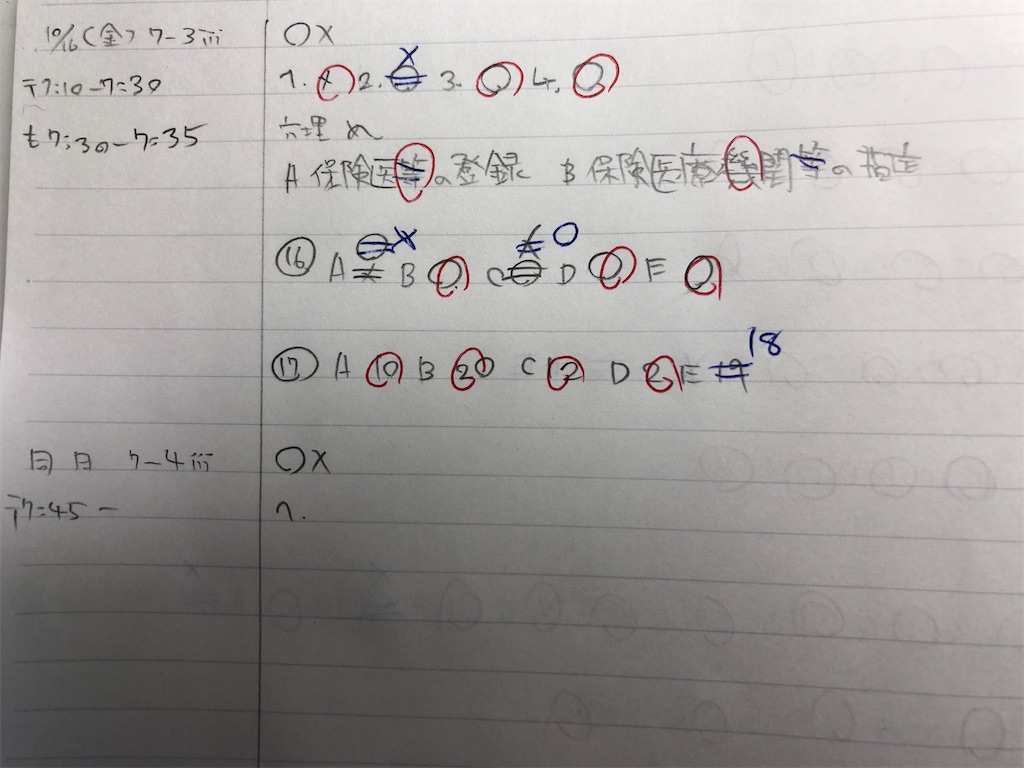 10/16(金) 7-3iii ○×
テ7:10-7:30 1. × 2. ○ × 3. ○ 4. ○
も7:30-7:35 穴埋め
A 保険医等の登録 B 保険医療機関等の指定
⑯ A × ○ × B ○ C ○ × ○ D ○ E ○
⑰ A 10 B 30 C 2 D 2 E 18
同日 7-4iii ○×
テ7:45- 1.